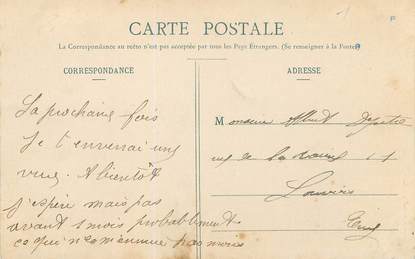 CARTE POSTALE
La Correspondance au recto n'est pas acceptée par tous les Pays Etrangers. (Se renseigner à la Poste)
CORRESPONDANCE
ADRESSE
La prochaine fois
je t'enverrai une
vue. A bientôt
j'espère mais pas
avant 1 mois probablement
ce qui n'est pas moins
Monsieur Albert
rue de
Louviers
Eure